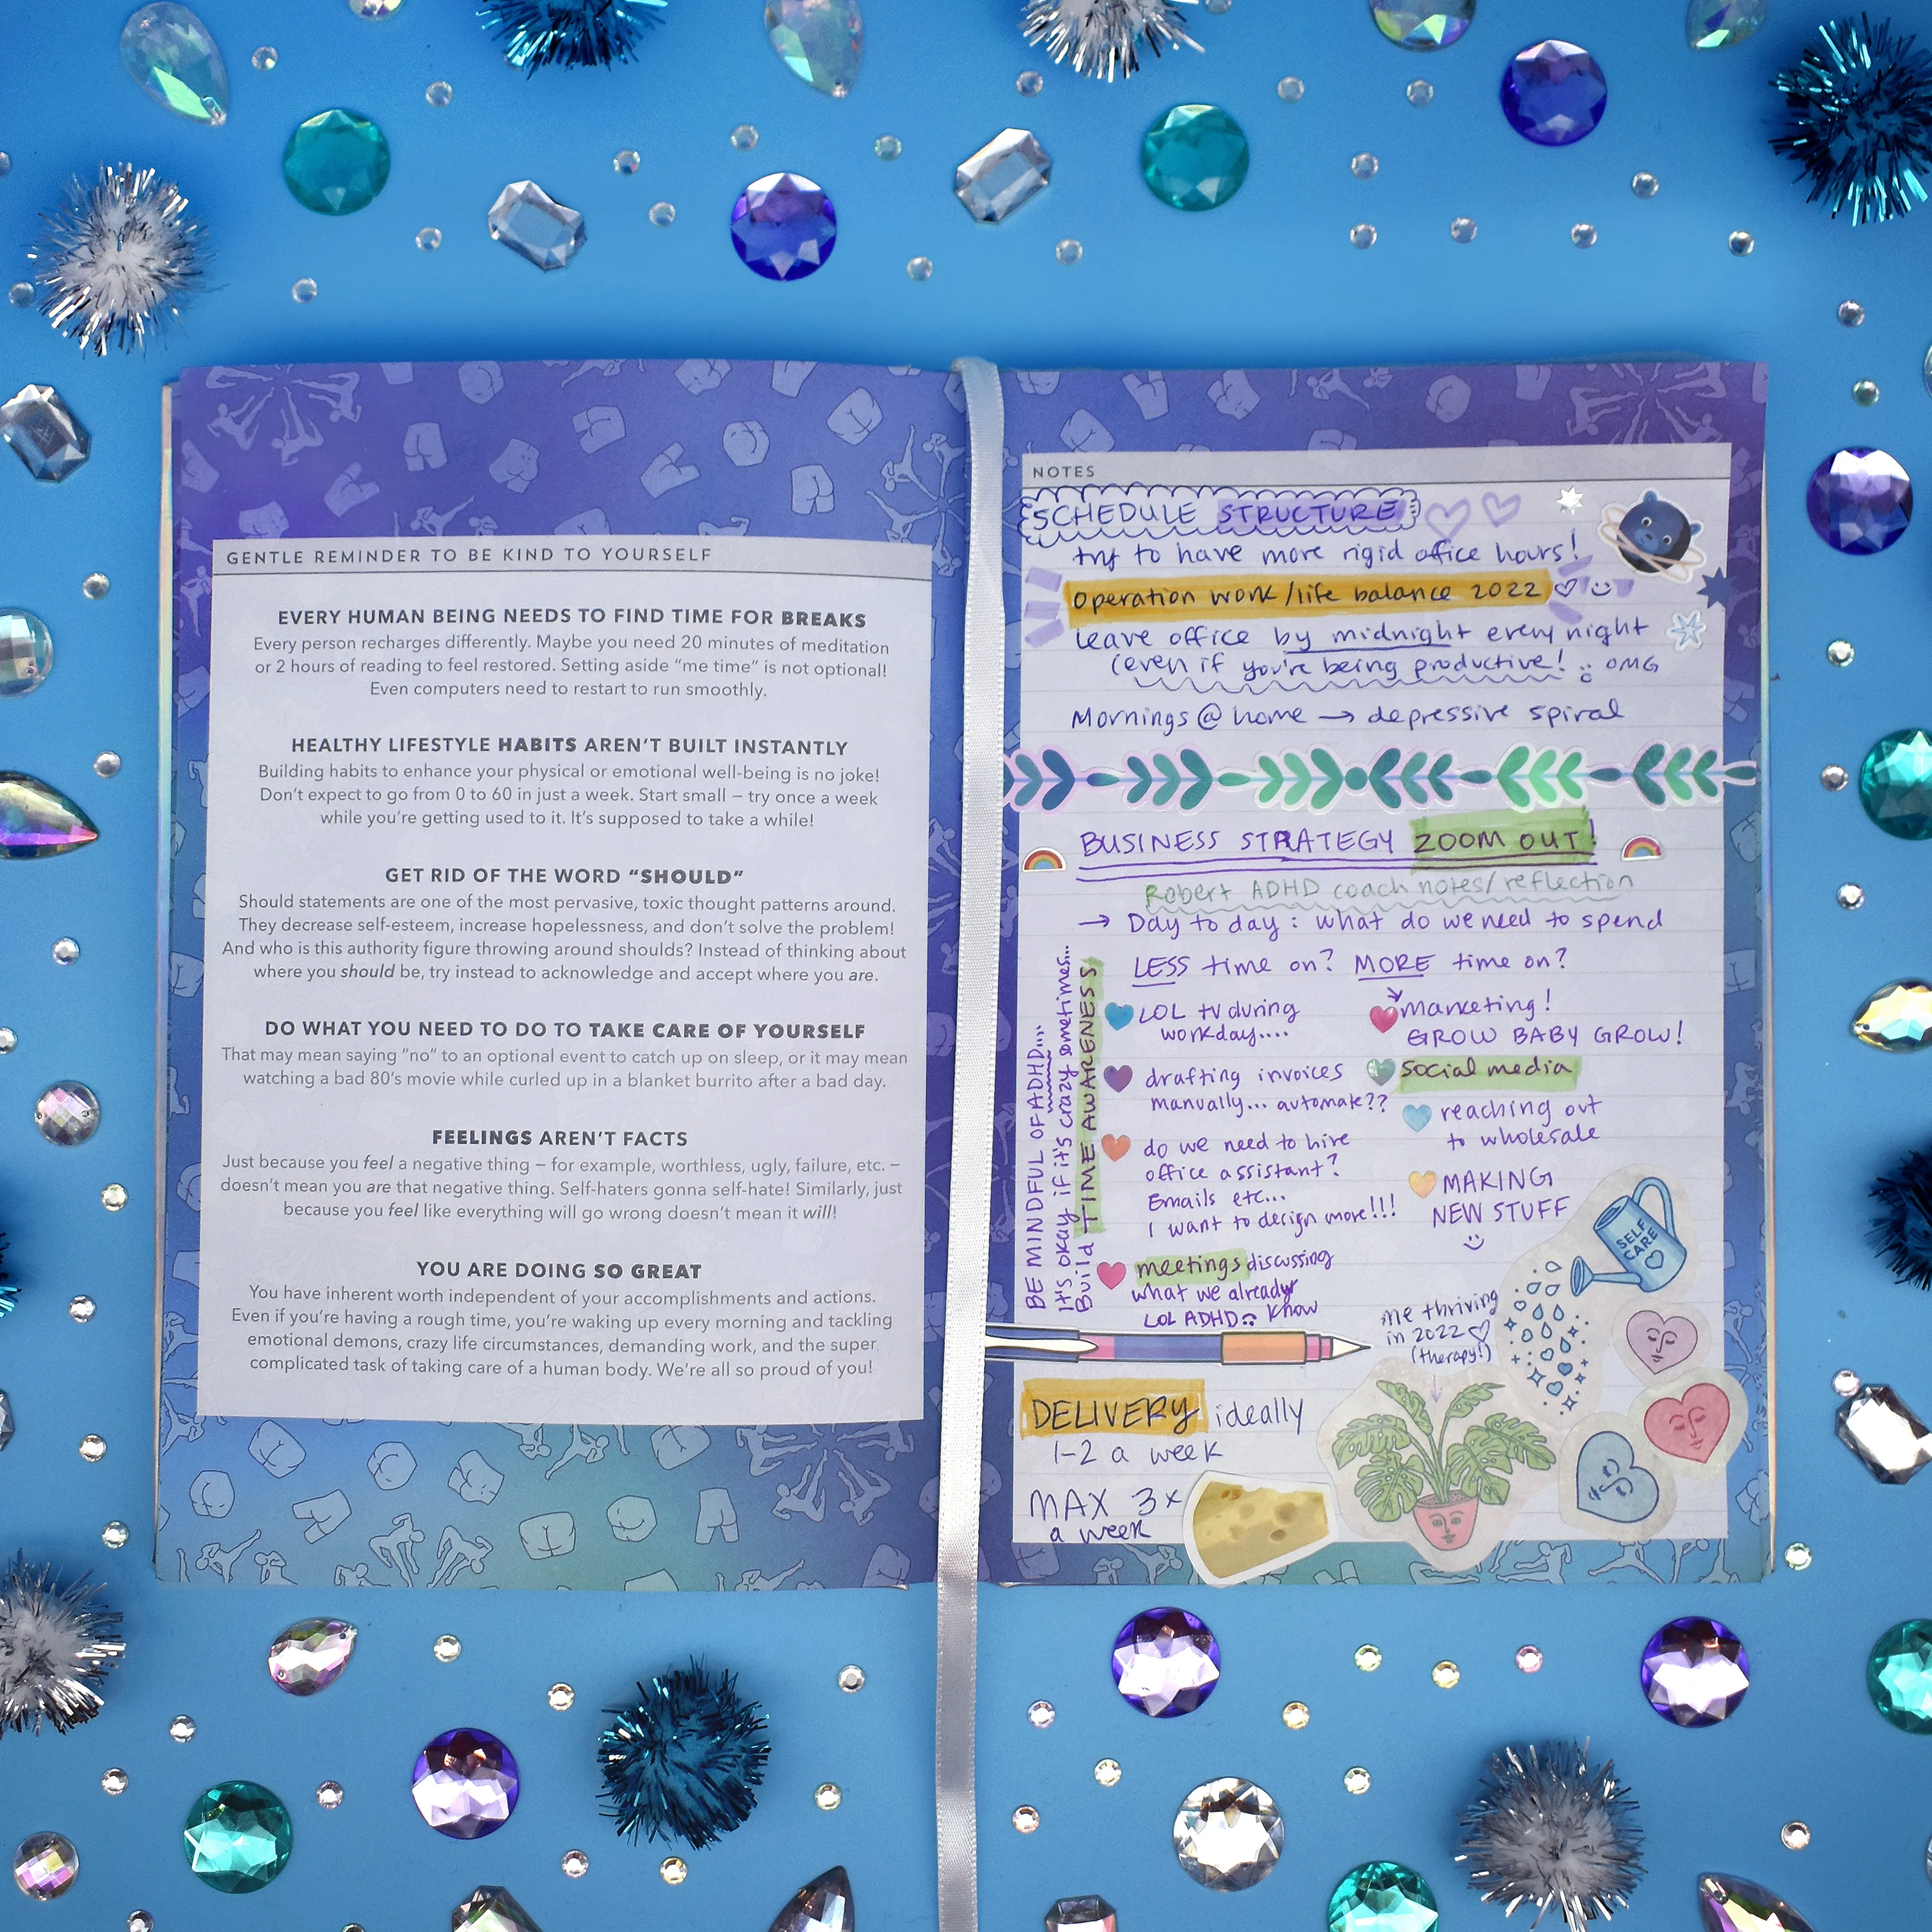 GENTLE REMINDER TO BE KIND TO YOURSELF
EVERY HUMAN BEING NEEDS TO FIND TIME FOR BREAKS
Every person recharges differently. Maybe you need 20 minutes of meditation
or 2 hours of reading to feel restored. Setting aside “me time” is not optional!
Even computers need to restart to run smoothly.
HEALTHY LIFESTYLE HABITS AREN’T BUILT INSTANTLY
Building habits to enhance your physical or emotional well-being is no joke!
Don’t expect to go from 0 to 60 in just a week. Start small – try once a week
while you’re getting used to it. It’s supposed to take a while!
GET RID OF THE WORD “SHOULD”
Should statements are one of the most pervasive, toxic thought patterns around.
They decrease self-esteem, increase hopelessness, and don’t solve the problem!
And who is this authority figure throwing around shoulds? Instead of thinking about
where you should be, try instead to acknowledge and accept where you are.
DO WHAT YOU NEED TO DO TO TAKE CARE OF YOURSELF
That may mean saying “no” to an optional event to catch up on sleep, or it may mean
watching a bad 80’s movie while curled up in a blanket burrito after a bad day.
FEELINGS AREN’T FACTS
Just because you feel a negative thing – for example, worthless, ugly, failure, etc. –
doesn’t mean you are that negative thing. Self-haters gonna self-hate! Similarly, just
because you feel like everything will go wrong doesn’t mean it will!
YOU ARE DOING SO GREAT
You have inherent worth independent of your accomplishments and actions.
Even if you’re having a rough time, you’re waking up every morning and tackling
emotional demons, crazy life circumstances, demanding work, and the super
complicated task of taking care of a human body. We’re all so proud of you!
NOTES
SCHEDULE STRUCTURE
try to have more rigid office hours!
Operation work/life balance 2022
leave office by midnight every night
(even if you're being productive! OMG
Mornings @ home → depressive spiral
BUSINESS STRATEGY ZOOM OUT!
Robert ADHD coach notes/reflection
→ Day to day: what do we need to spend
LESS time on? MORE time on?
LOL tv during
workday....
drafting invoices
manually... automate??
do we need to hire
office assistant?
Emails etc...
I want to design more!!!
meetings discussing
what we already
know
LOL ADHD
marketing!
GROW BABY GROW!
social media
reaching out
to wholesale
MAKING
NEW STUFF
BE MINDFUL OF ADHD....
It's okay if it's crazy sometimes...
Build TIME AWARENESS
SELF
CARE
me thriving
in 2022
(therapy!)
DELIVERY ideally
1-2 a week
MAX 3x
a week